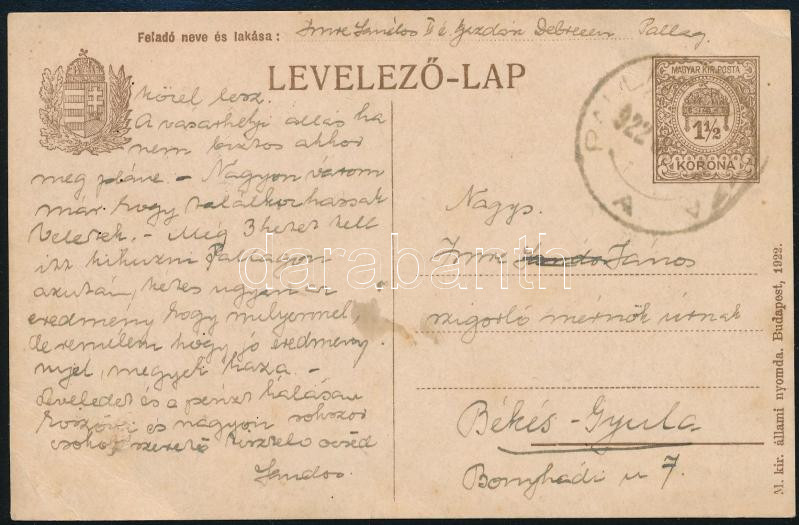 Feladó neve és lakása: Imre Sándor II é. gazdás Debrecen Pallag
LEVELEZŐ-LAP
MAGYAR KIR. POSTA
1½
KORONA
922
közel lesz.
A vásárhelyi állás ha
nem biztos akkor
meg pláne. - Nagyon várom
már hogy találkozhassak
Veletek. - Még 3 hetet kell
itt kihuzni Pallagon
azután, kétes ugyan az
eredmény hogy milyennel,
de remélem hogy jó eredmény
nyel, megyek haza. -
Leveledet és a pénzt hálásan
köszöni és nagyon sokszor
csókol szerető tisztelő öcséd
Sándor.
Nagys.
Imre Sándor János
szigorló mérnök úrnak
Békés-Gyula
Bonyhádi u 7.
M. kir. állami nyomda. Budapest, 1922.
darabanth